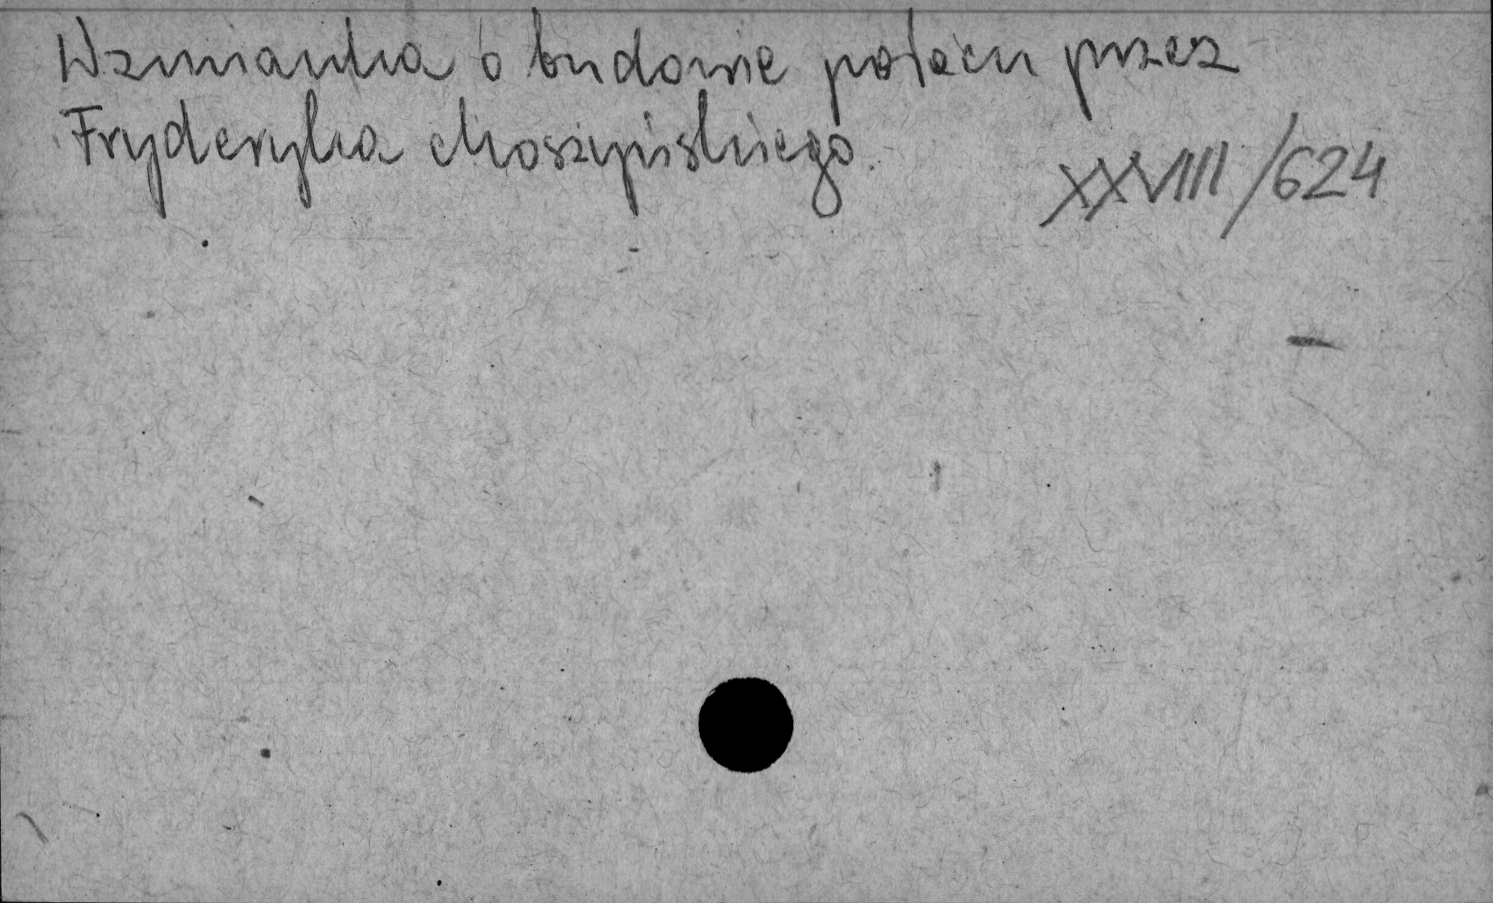 Wzmianka o budowie pałacu przez
Fryderyka Moszyńskiego.
XXVIIII/624